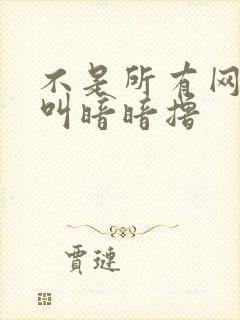 不是所有网
叫暗暗撸
贾琏